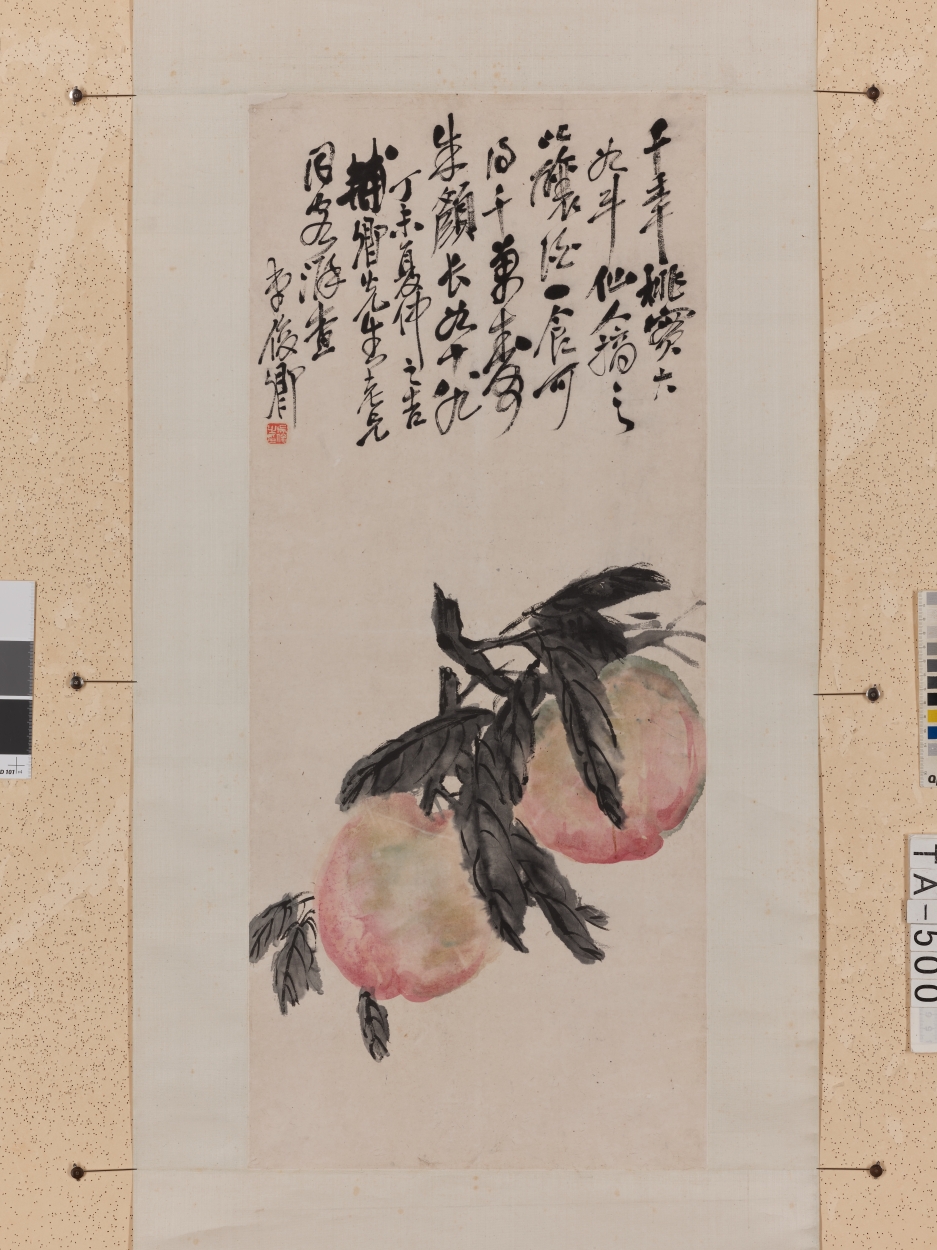 千年桃實大
如斗仙人摘之
以釀酒一食可
得千萬壽
朱顏長如十八九
丁未夏仲之吉
卿先生老兄
同客
吳俊卿
TA-500